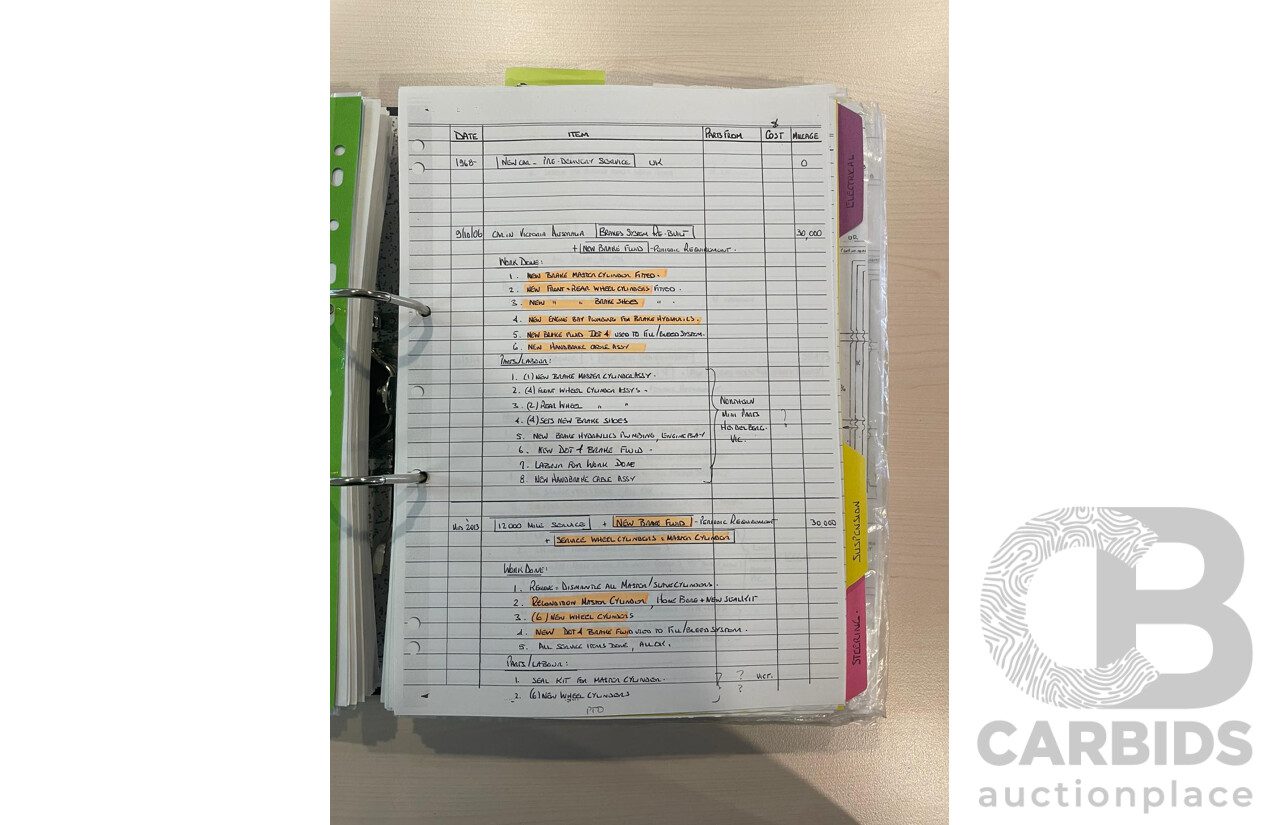 DATE ITEM PARTS FROM $ COST MILEAGE
1968- NEW CAR - PRE-DELIVERY SERVICE UK 0
9/10/06 CAR IN VICTORIA AUSTRALIA BRAKES SYSTEM RE-BUILT 30,000
+ NEW BRAKE FLUID - PERIODIC REQUIREMENT.
WORK DONE:
1. NEW BRAKE MASTER CYLINDER FITTED.
2. NEW FRONT + REAR WHEEL CYLINDERS FITTED.
3. NEW " " BRAKE SHOES " .
4. NEW ENGINE BAY PLUMBING FOR BRAKE HYDRAULICS.
5. NEW BRAKE FLUID DOT 4 USED TO FILL/BLEED SYSTEM.
6. NEW HANDBRAKE CABLE ASSY
PARTS/LABOUR:
1. (1) NEW BRAKE MASTER CYLINDER ASSY.
2. (4) FRONT WHEEL CYLINDER ASSYS.
3. (2) REAR WHEEL " "
4. (4) SETS NEW BRAKE SHOES
5. NEW BRAKE HYDRAULICS PLUMBING, ENGINE BAY
6. NEW DOT 4 BRAKE FLUID.
7. LABOUR FOR WORK DONE
8. NEW HANDBRAKE CABLE ASSY
MINI PARTS
HEIDELBERG.
VIC.
?
2003 12,000 MILE SERVICE + NEW BRAKE FLUID - PERIODIC REQUIREMENT 30,000
+ SERVICE WHEEL CYLINDERS + MASTER CYLINDER
WORK DONE:
1. REMOVE + DISMANTLE ALL MASTER/SLAVE CYLINDERS.
2. RECONDITION MASTER CYLINDER, HONE BORE + NEW SEAL KIT
3. (6) NEW WHEEL CYLINDERS
4. NEW DOT 4 BRAKE FLUID USED TO FILL/BLEED SYSTEM.
5. ALL SERVICE ITEMS DONE, ALL OK.
PARTS/LABOUR:
1. SEAL KIT FOR MASTER CYLINDER. ? ? VICT.
2. (6) NEW WHEEL CYLINDERS ?
PTO
ELECTRICAL
SUSPENSION
STEERING.
CB
CARBIDS
auctionplace